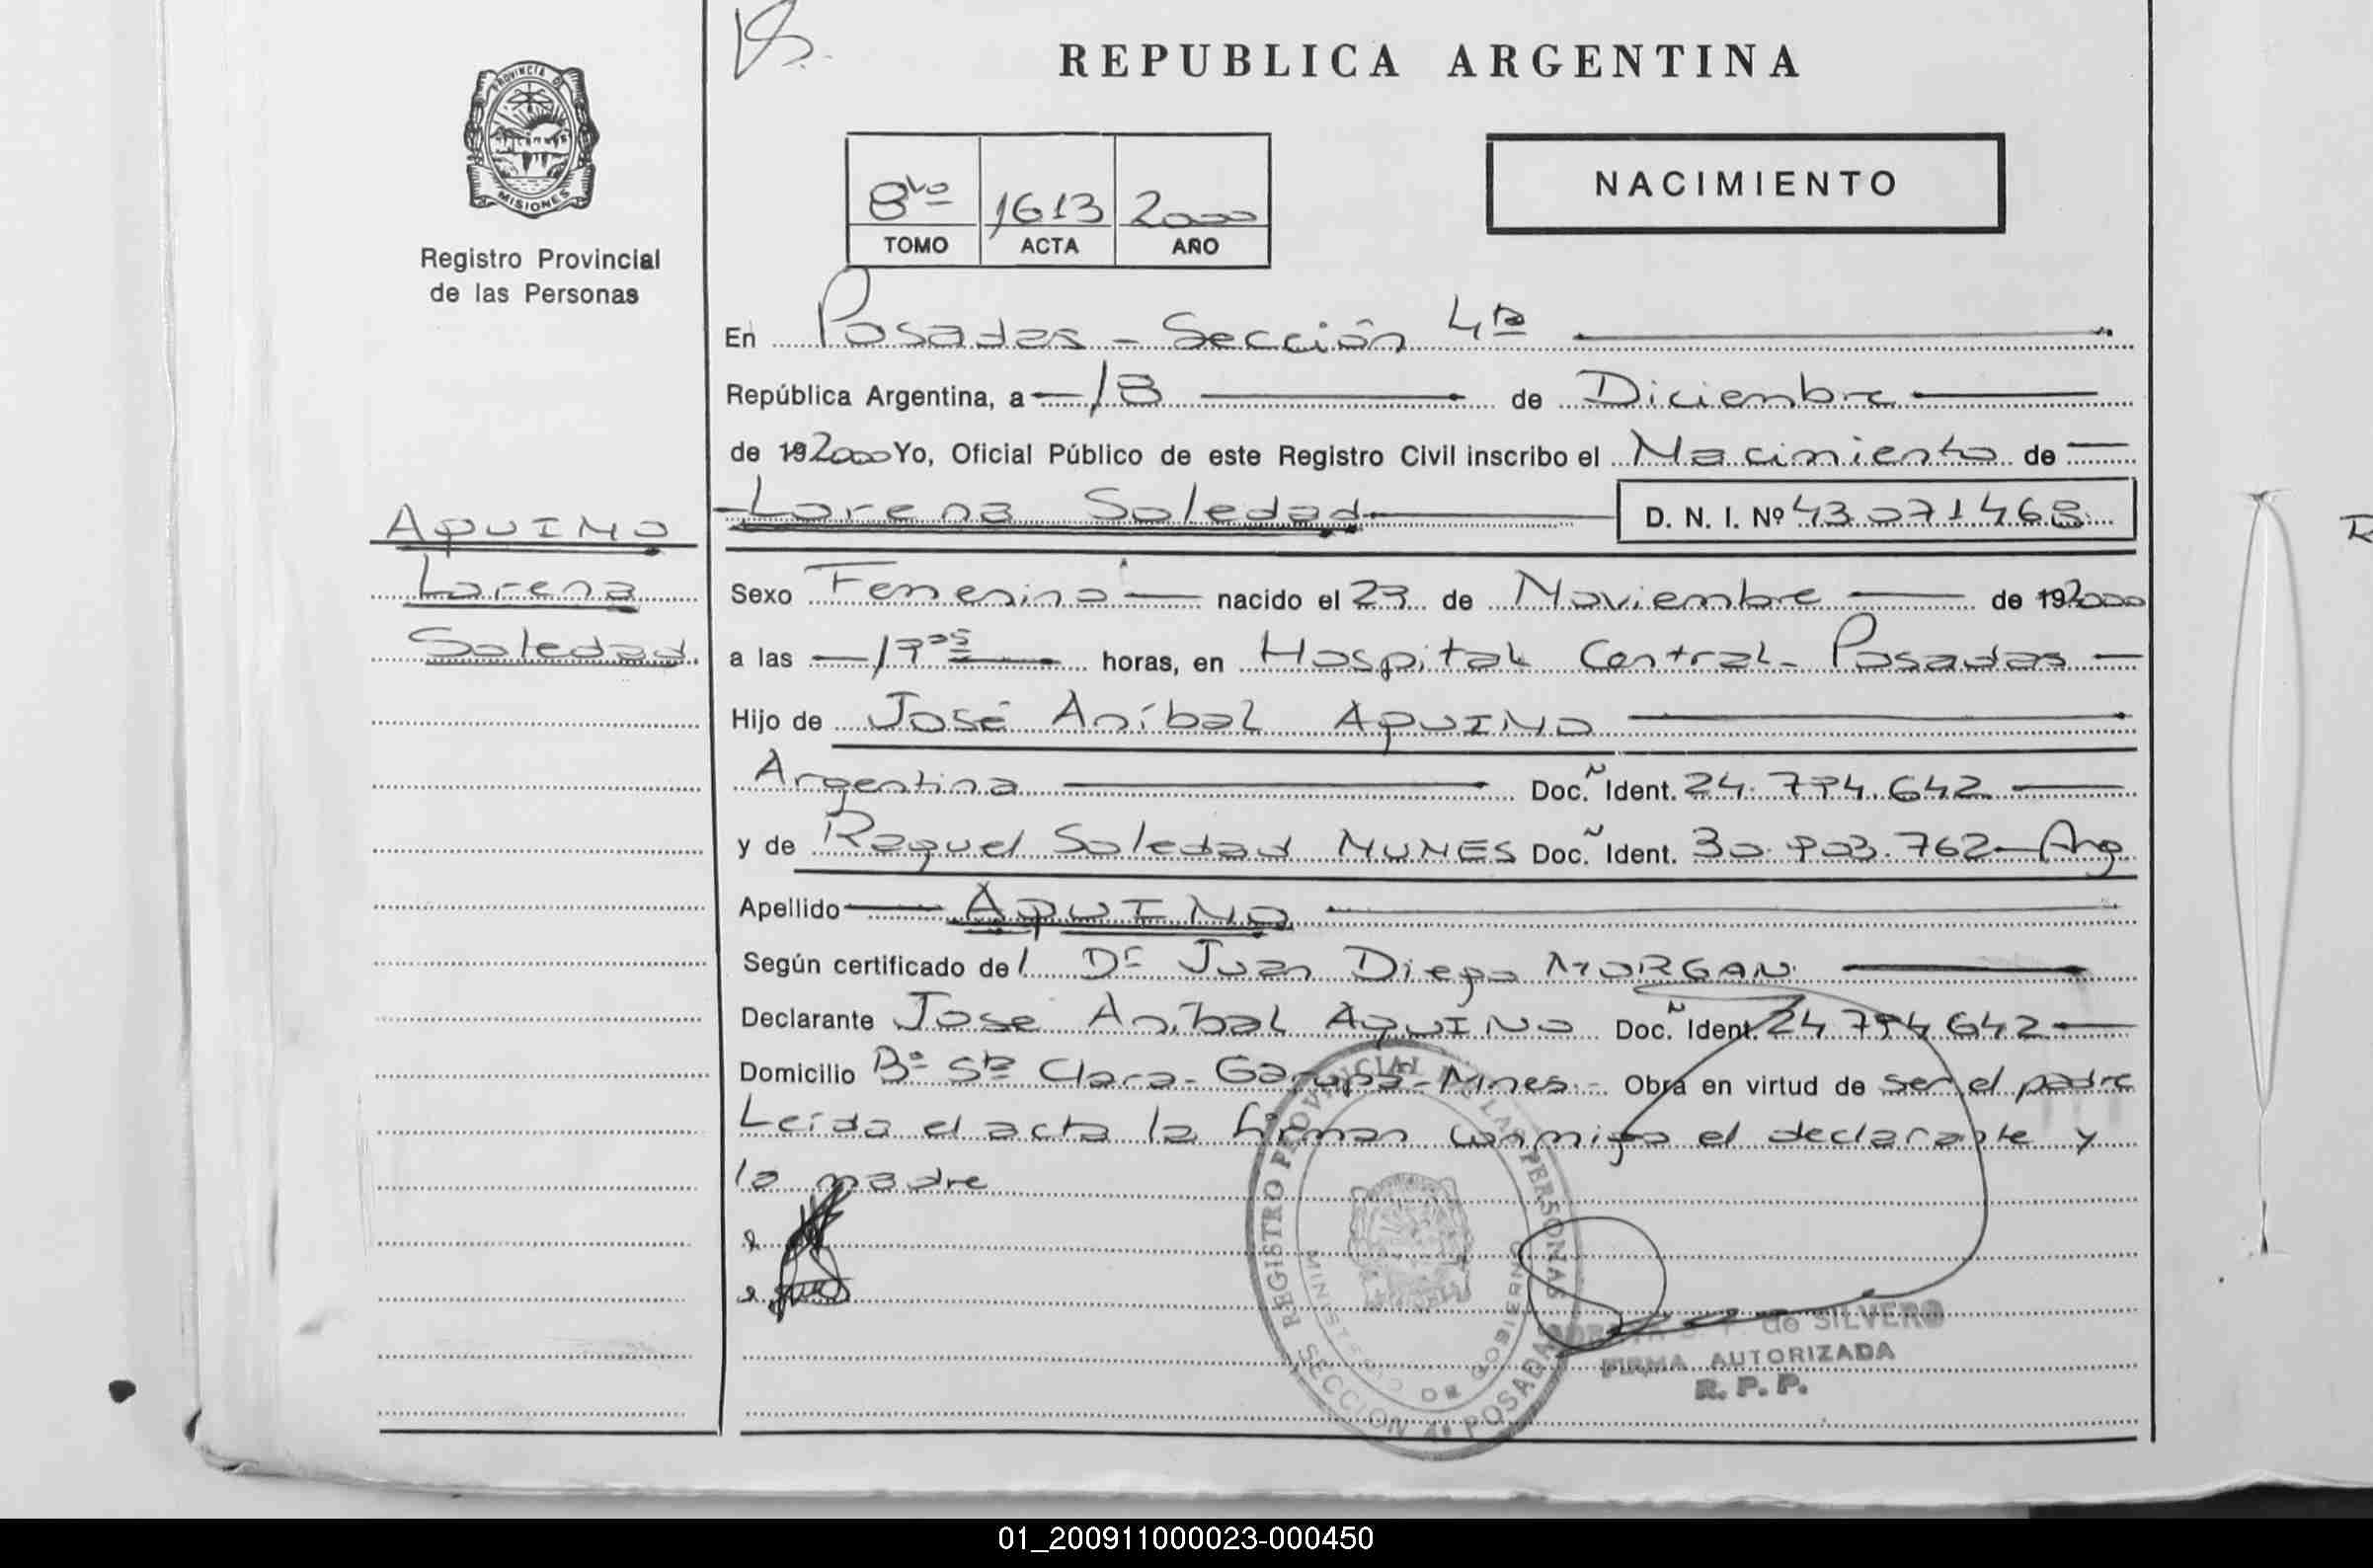 REPUBLICA ARGENTINA
PROVINCIA DE
MISIONES
Registro Provincial
de las Personas
NACIMIENTO
8vo 1613 2000
TOMO ACTA AÑO
En Posadas - Sección 4ta
República Argentina, a 18 de Diciembre
de 192000 Yo, Oficial Público de este Registro Civil inscribo el Nacimiento de
Lorena Soledad D. N. I. Nº 43.071.468
AQUINO
Lorena
Soledad
Sexo Femenino nacido el 23 de Noviembre de 192000
a las horas, en Hospital Central - Posadas
Hijo de José Aníbal AQUINO
Argentina Doc. Ident. 24.794.642
y de Raquel Soledad NUNES Doc. Ident. 30.903.762 - Arg
Apellido AQUINO
Según certificado del Dr Juan Diego MORGAN
Declarante José Aníbal AQUINO Doc. Ident. 24.794.642
Domicilio Bº Sta Clara - Garupá - Mnes. - Obra en virtud de ser el padre
Leída el acta la firman conmigo el declarante y
la madre
REGISTRO PROVINCIAL DE LAS PERSONAS
MINISTERIO DE GOBIERNO
SECCION 4ª POSADAS
de SILVERO
FIRMA AUTORIZADA
R. P. P.
01_200911000023-000450